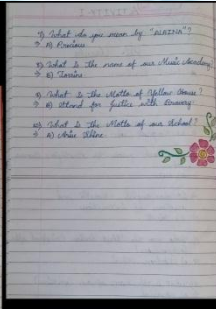 7) What do you mean by "ALAINA"?
→ B) Precious
8) What Is the name of our Music Academy
→ B)
9) What Is the Motto of Yellow House?
→ B) Stand for Justice with Bravery
10) What Is the Motto of our School?
→ A) Arise Shine